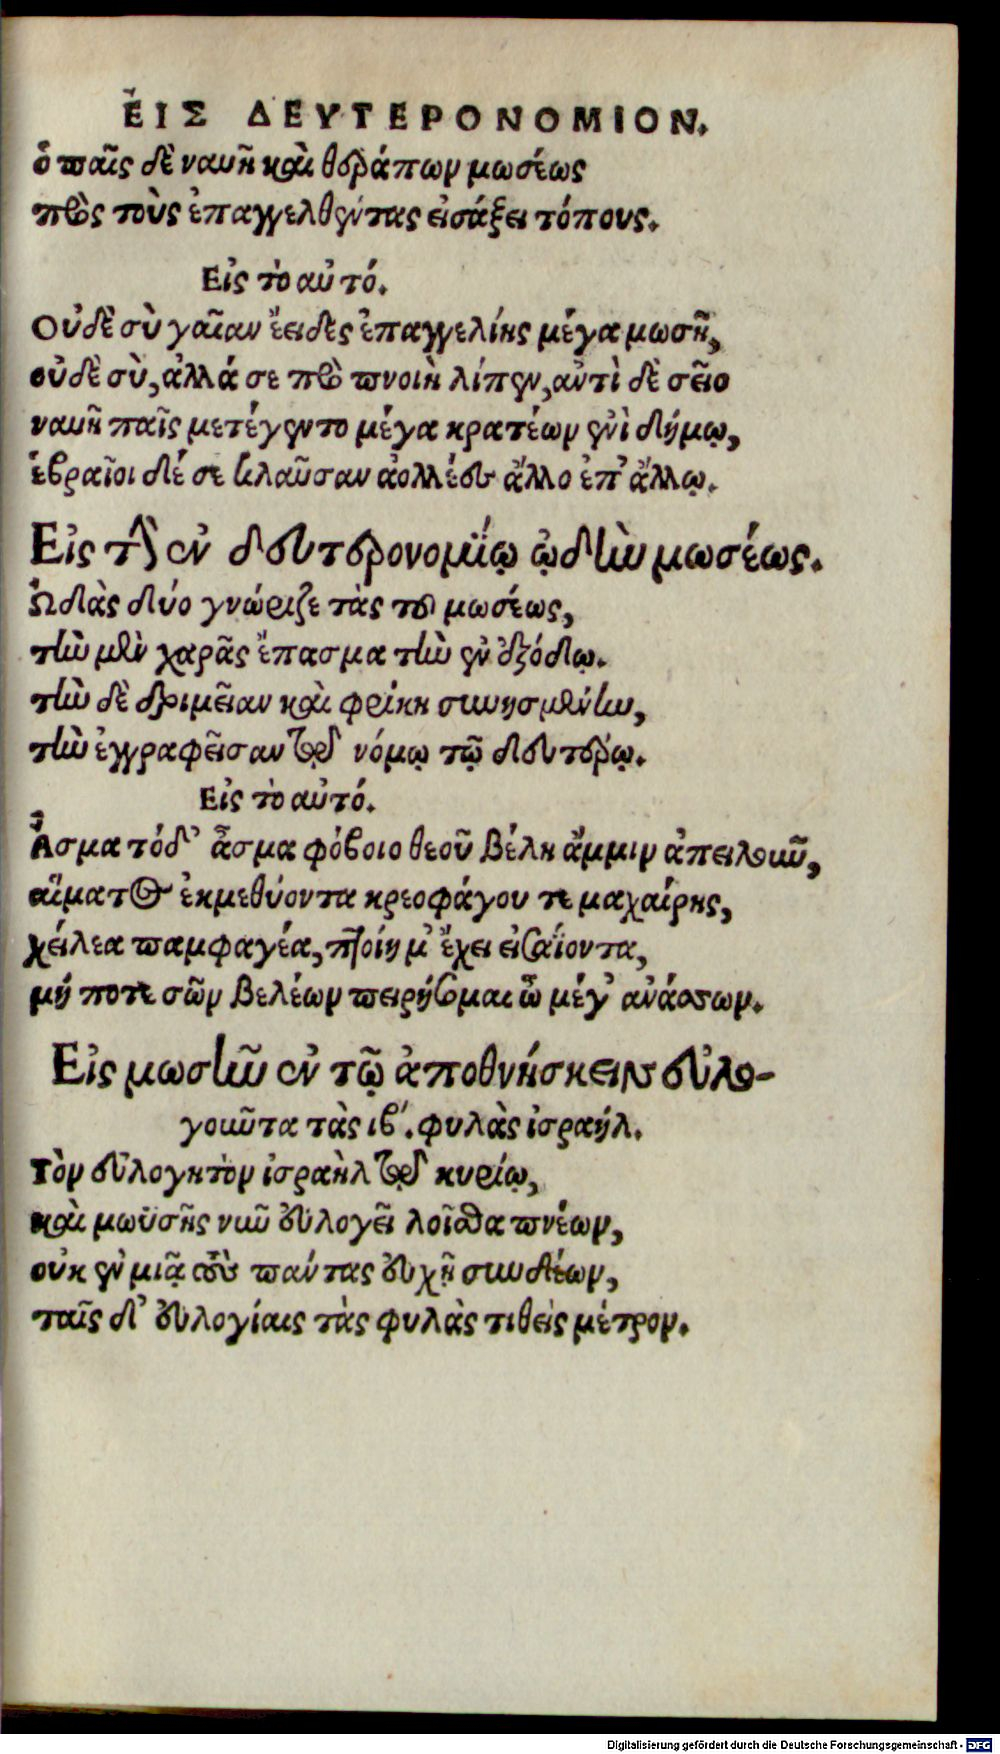 ΕἸΣ ΔΕΥΤΕΡΟΝΟΜΙΟΝ.
ὁ παῖς δὲ ναυῆ καὶ θεράπων μωσέως
πρὸς τοὺς ἐπαγγελθέντας εἰσάξει τόπους.
Εἰς τὸ αὐτό.
Οὐδὲ σὺ γαῖαν ἔειδες ἐπαγγελίης μέγα μωσῆ,
οὐδὲ σὺ, ἀλλά σε πρὸ πνοιὴ λίπεν, αὐτὶ δὲ σεῖο
ναυῆ παῖς μετέγεντο μέγα κρατέων ἐνὶ δήμῳ,
ἑβραῖοι δέ σε κλαῦσαν ἀολλέες ἄλλο ἐπ' ἄλλῳ.
Εἰς τὴν ἐν δευτερονομίῳ ᾠδὴν μωσέως.
Ὠδὰς δύο γνώριζε τὰς τοῦ μωσέως,
τὴν μὲν χαρᾶς ἔπασμα τὴν ἐν ἐξόδῳ.
τὴν δὲ δριμεῖαν καὶ φρίκη συνησμένην,
τὴν ἐγγραφεῖσαν ἐν νόμῳ τῷ δευτέρῳ.
Εἰς τὸ αὐτό.
Ἆσμα τόδ' ἆσμα φόβοιο θεοῦ βέλη ἄμμιν ἀπειλοῦν,
αἵματος ἐκμεθύοντα κρεοφάγου τε μαχαίρης,
χείλεα παμφαγέα, πτοίη μ' ἔχει εἰσαΐοντα,
μή ποτε σῶν βελέων πειρήσομαι ὦ μέγ' ἀνάσσων.
Εἰς μωσῆν ἐν τῷ ἀποθνήσκειν εὐλο-
γοῦντα τὰς ιβ'. φυλὰς ἰσραήλ.
Τὸν εὐλογητὸν ἰσραὴλ ἐν κυρίῳ,
καὶ μωϋσῆς νῦν εὐλογεῖ λοῖσθα πνέων,
οὐκ ἐν μιᾷ τοὺς πάντας εὐχῇ συνδέων,
ταῖς δ' εὐλογίαις τὰς φυλὰς τιθεὶς μέτρον.
Digitalisierung gefördert durch die Deutsche Forschungsgemeinschaft - DFG